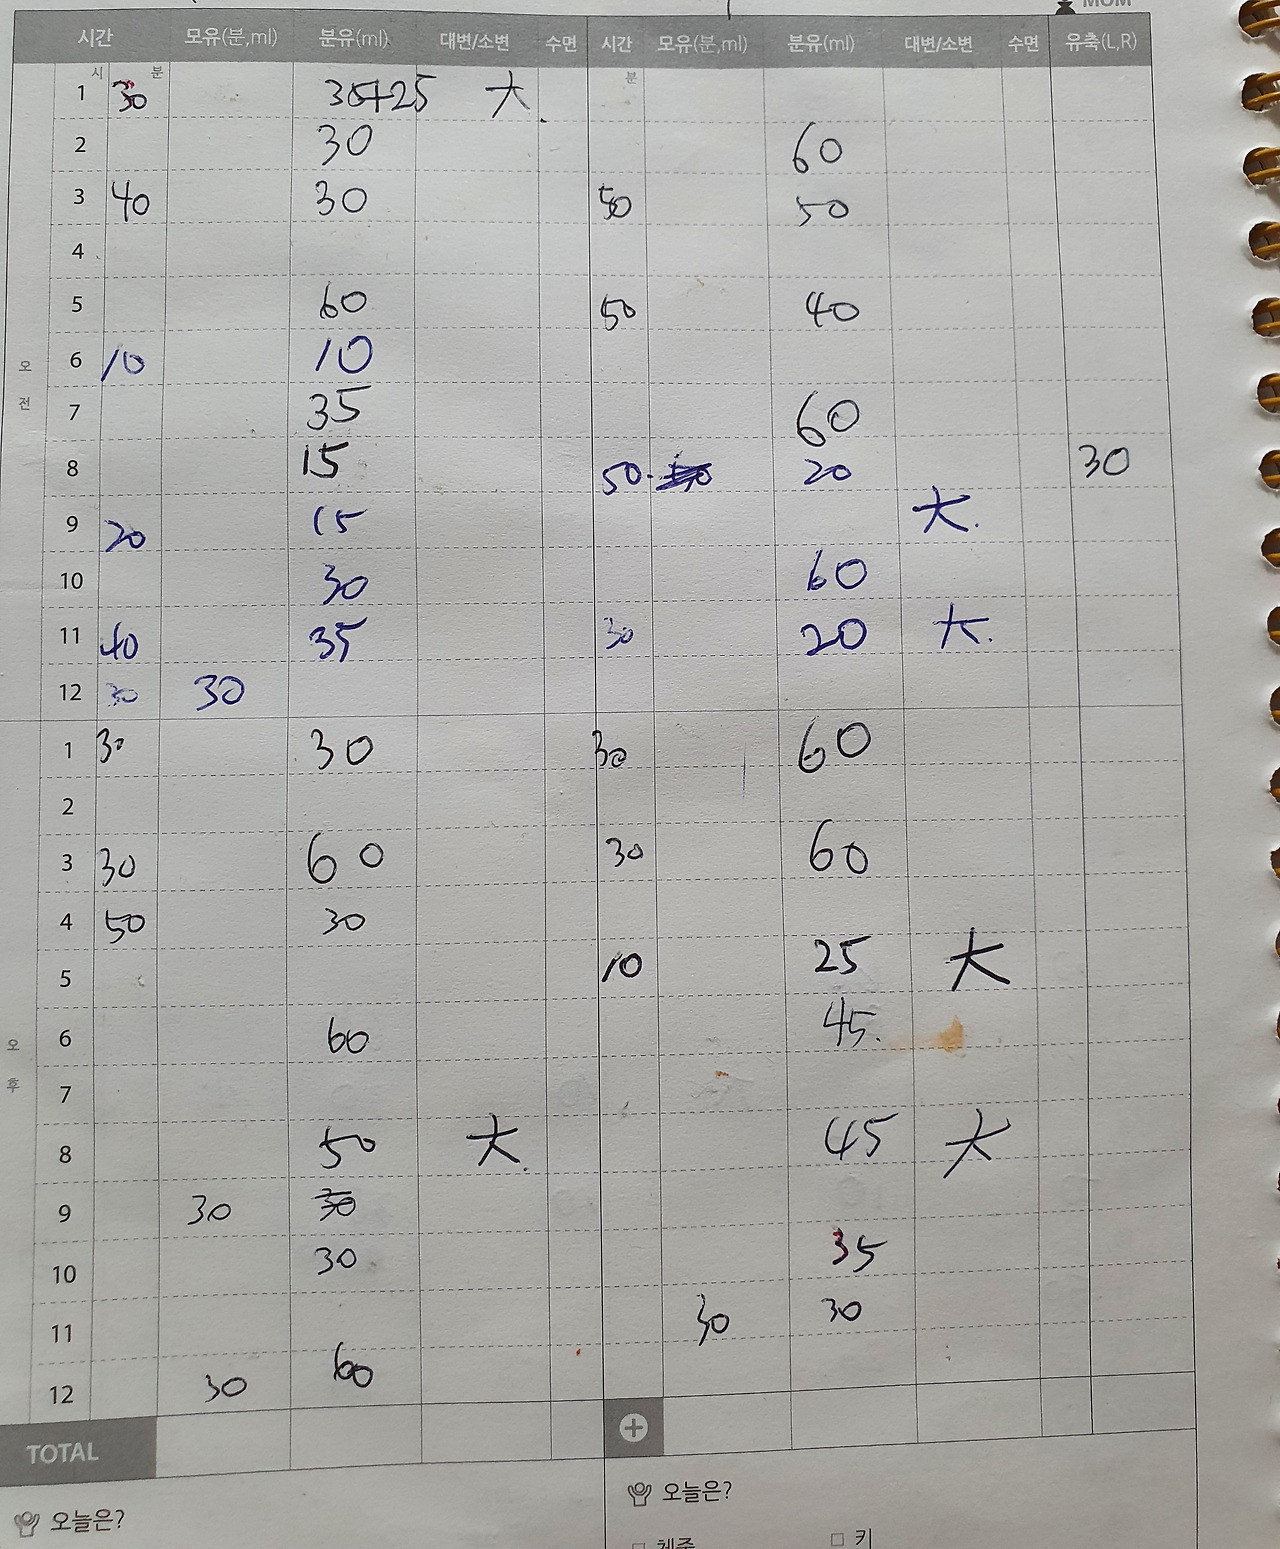 MOM
시간 모유(분,ml) 분유(ml) 대변/소변 수면 시간 모유(분,ml) 분유(ml) 대변/소변 수면 유축(L,R)
시 분 분
오전
1 30 30+25 大
2 30 60
3 40 30 50 50
4
5 60 50 40
6 10 10
7 35 60
8 15 50. 20 30
9 20 15 大.
10 30 60
11 40 35 30 20 大.
12 30 30
오후
1 30 30 30 60
2
3 30 60 30 60
4 50 30
5 10 25 大
6 60 45.
7
8 50 大. 45 大
9 30 30
10 30 35
11 30 30
12 30 60
TOTAL +
오늘은? 오늘은?
체중 키